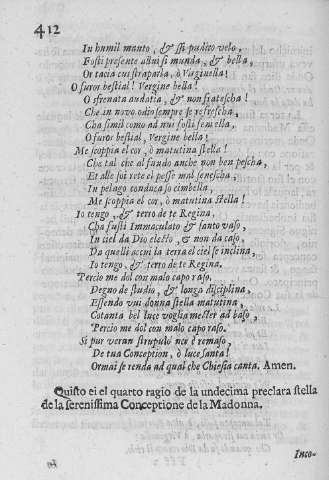 412
In humil manto, & sì pudico velo,
Fosti presente altrui si munda, & bella,
Or tacia cui straparla, ò Virginella!
O furor bestial! Vergine bella!
O sfrenata audatia, & non fratescha!
Che in novo odio sempre se refrescha,
Cha simil como ad nui fosti femella,
O furor bestial, Vergine bella!
Me scoppia el cor, ò matutina stella!
Che tal che al fundo anche non ben pescha,
Et alle soi rete el pesse mal s'enescha,
In pelago conduca so cimbella,
Me scoppia el cor, ò matutina stella!
Io tengo, & terrò de te Regina,
Cha fusti Immaculato & santo vaso,
In ciel da Dio eletto, & non da caso,
Da quelli accui la terra el ciel se inclina,
Io tengo, & terrò de te Regina.
Percio me dol con malo capo raso,
Degno de studio, & longa disciplina,
Essendo vui donna stella matutina,
Cotanta bel luce voglia mester ad baso,
Percio me dol con malo capo raso.
Si pur veran strupulò nce è remaso,
De tua Conception, ò luce santa!
Ormai se renda ad qual che Chiesia canta. Amen.
Quisto ei el quarto ragio de la undecima preclara stella
de la serenissima Conceptione de la Madonna.
Inco-